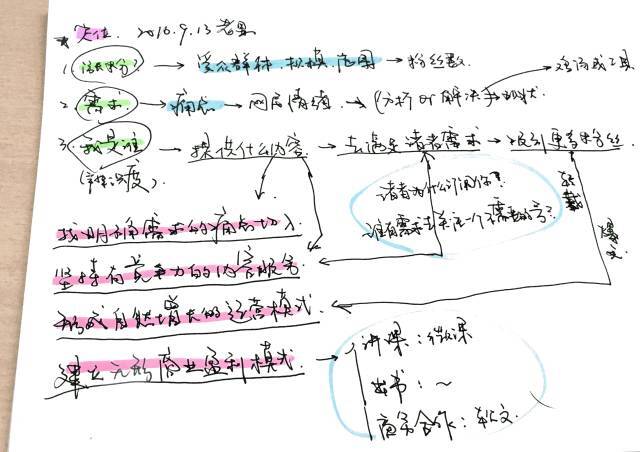 定位. 2016.9.13 老
1. → 受众群体, 规模, 范围 → 粉丝数.
2. 需求 → 痛点 → 网民情绪 → 分析 or 解决 现状. 鸡汤或工具
3. 我是谁 → 提供什么内容 → 去满足读者需求 → 吸引更多粉丝
读者为什么订阅你?
谁有需求去关注一个不需要的号?
转载
爆文
找明确需求的痛点切入
坚持有竞争力的内容服务
形成自然增长的运营模式
建立无形商业盈利模式 → 讲课: 微课
出书: ~
商务合作: 软文.